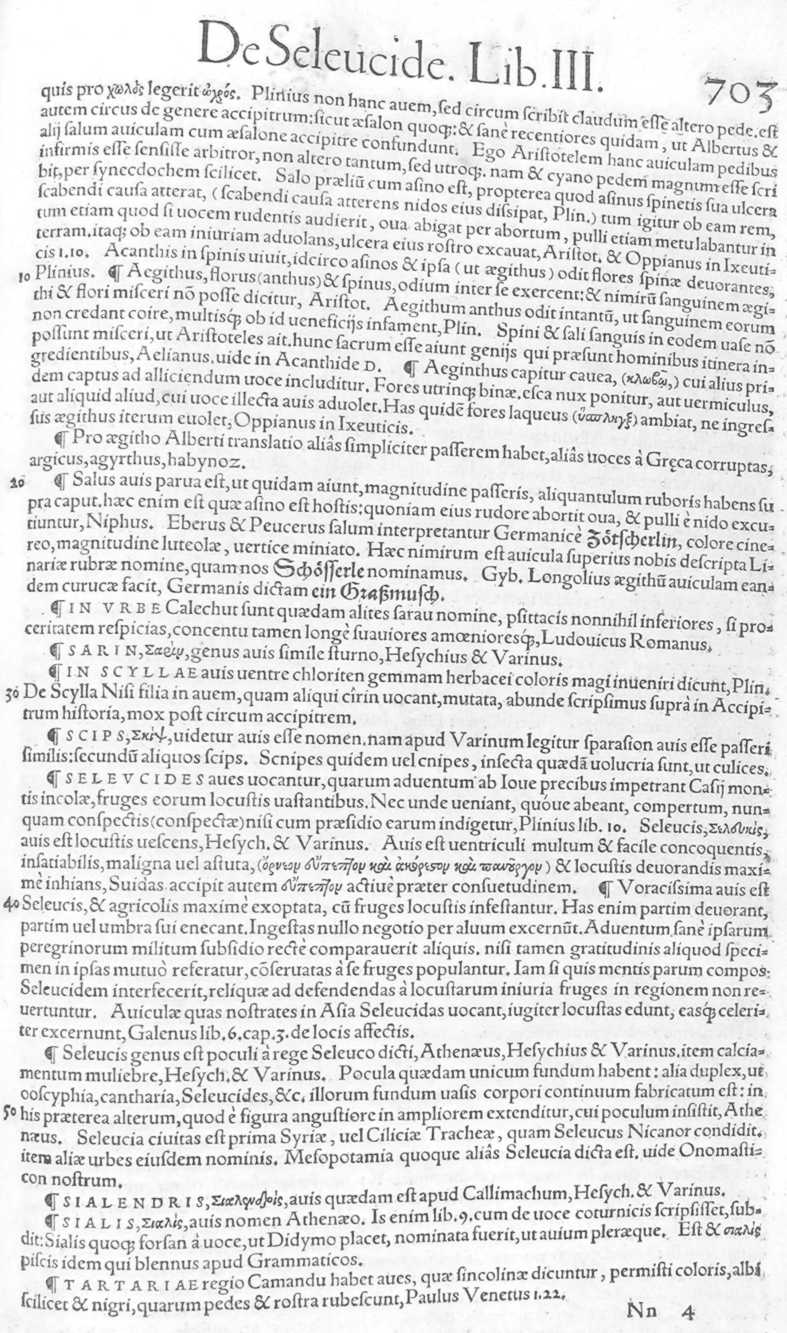 De Seleucide. Lib. III. 703
quis pro χωλὸς legerit ὠχρός. Plinius non hanc auem, sed circum scribit claudum esse altero pede. est
autem circus de genere accipitrum: sicut æsalon quoq;: & sanè recentiores quidam, ut Albertus &
alij salum auiculam cum æsalone accipitre confundunt. Ego Aristotelem hanc auiculam pedibus
infirmis esse sensisse arbitror, non altero tantum, sed utroq;. nam & cyano pedem magnum esse scri
bit, per synecdochem scilicet. Salo præliũ cum asino est, propterea quod asinus spinetis sua ulcera
scabendi causa atterat, (scabendi causa atterens nidos eius dissipat, Plin.) tum igitur ob eam rem,
tum etiam quod si uocem rudentis audierit, oua abigat per abortum, pulli etiam metu labantur in
terram. itaq; ob eam iniuriam aduolans, ulcera eius rostro excauat, Aristot. & Oppianus in Ixeuti=
cis 1.10. Acanthis in spinis uiuit, idcirco asinos & ipsa (ut ægithus) odit flores spinæ deuorantes,
10 Plinius. ¶ Aegithus, florus (anthus) & spinus, odium inter se exercent: & nimirũ sanguinem ægi=
thi & flori misceri nõ posse dicitur, Aristot. Aegithum anthus odit intantũ, ut sanguinem eorum
non credant coire, multisq; ob id ueneficijs infament, Plin. Spini & sali sanguis in eodem uase nõ
possunt misceri, ut Aristoteles ait. hunc sacrum esse aiunt genijs qui præsunt hominibus itinera in=
gredientibus, Aelianus. uide in Acanthide D. ¶ Aeginthus capitur cauea, (κλωβῷ,) cui alius pri=
dem captus ad alliciendum uoce includitur. Fores utrinq; binæ. esca nux ponitur, aut uermiculus,
aut aliquid aliud, cui uoce illecta auis aduolet. Has quidẽ fores laqueus (ὕσπληγξ) ambiat, ne ingres=
sus ægithus iterum euolet, Oppianus in Ixeuticis.
¶ Pro ægitho Alberti translatio aliâs simpliciter passerem habet, aliâs uoces à Gręca corruptas,
argicus, agyrthus, habynoz.
20 ¶ Salus auis parua est, ut quidam aiunt, magnitudine passeris, aliquantulum ruboris habens su
pra caput. hæc enim est quæ asino est hostis: quoniam eius rudore abortit oua, & pulli è nido excu
tiuntur, Niphus. Eberus & Peucerus salum interpretantur Germanicè Zötscherlin, colore cine=
reo, magnitudine luteolæ, uertice miniato. Hæc nimirum est auicula superius nobis descripta Li=
nariæ rubræ nomine, quam nos Schösserle nominamus. Gyb. Longolius ægithũ auiculam ean=
dem curucæ facit, Germanis dictam ein Graßmusch.
¶ IN VRBE Calechut sunt quædam alites sarau nomine, psittacis nonnihil inferiores, si pro=
ceritatem respicias, concentu tamen longè suauiores amœnioresq;, Ludouicus Romanus.
¶ SARIN, Σαρὶν, genus auis simile sturno, Hesychius & Varinus.
¶ IN SCYLLAE auis uentre chloriten gemmam herbacei coloris magi inueniri dicunt, Plin.
30 De Scylla Nisi filia in auem, quam aliqui cîrin uocant, mutata, abunde scripsimus suprà in Accipi=
trum historia, mox post circum accipitrem.
¶ SCIPS, Σκὶψ, uidetur auis esse nomen. nam apud Varinum legitur sparasion auis esse passeri
similis: secundũ aliquos scips. Scnipes quidem uel cnipes, insecta quædã uolucria sunt, ut culices.
¶ SELEVCIDES aues uocantur, quarum aduentum ab Ioue precibus impetrant Casij mon=
tis incolæ, fruges eorum locustis uastantibus. Nec unde ueniant, quóue abeant, compertum, nun=
quam conspectis (conspectæ) nisi cum præsidio earum indigetur, Plinius lib. 10. Seleucis, Σελευκὶς,
auis est locustis uescens, Hesych. & Varinus. Auis est uentriculi multum & facile concoquentis,
insatiabilis, maligna uel astuta, (ὄρνεον εὔπεπτον καὶ ἀκόρεστον καὶ πανοῦργον) & locustis deuorandis maxi=
mè inhians, Suidas. accipit autem εὔπεπτον actiuè præter consuetudinem. ¶ Voracissima auis est
40 Seleucis, & agricolis maximè exoptata, cũ fruges locustis infestantur. Has enim partim deuorant,
partim uel umbra sui enecant. Ingestas nullo negotio per aluum excernũt. Aduentum sanè ipsarum
peregrinorum militum subsidio rectè comparauerit aliquis. nisi tamen gratitudinis aliquod speci=
men in ipsas mutuò referatur, cõseruatas à se fruges populantur. Iam si quis mentis parum compos
Seleucidem interfecerit, reliquæ ad defendendas à locustarum iniuria fruges in regionem non re=
uertuntur. Auiculæ quas nostrates in Asia Seleucidas uocant, iugiter locustas edunt, easq; celeri=
ter excernunt, Galenus lib. 6. cap. 3. de locis affectis.
¶ Seleucis genus est poculi à rege Seleuco dicti, Athenæus, Hesychius & Varinus. item calcia=
mentum muliebre, Hesych. & Varinus. Pocula quædam unicum fundum habent: alia duplex, ut
ooscyphia, cantharia, Seleucides, &c. illorum fundum uasis corpori continuum fabricatum est: in
50 his præterea alterum, quod è figura angustiore in ampliorem extenditur, cui poculum insistit, Athe
næus. Seleucia ciuitas est prima Syriæ, uel Ciliciæ Tracheæ, quam Seleucus Nicanor condidit.
item aliæ urbes eiusdem nominis. Mesopotamia quoque aliâs Seleucia dicta est. uide Onomasti=
con nostrum.
¶ SIALENDRIS, Σιαλενδρὶς, auis quædam est apud Callimachum, Hesych. & Varinus.
¶ SIALIS, Σιαλὶς, auis nomen Athenæo. Is enim lib. 9. cum de uoce coturnicis scripsisset, sub=
dit: Sialis quoq; forsan à uoce, ut Didymo placet, nominata fuerit, ut auium pleræque. Est & σιαλὶς
piscis idem qui blennus apud Grammaticos.
¶ TARTARIAE regio Camandu habet aues, quæ sincolinæ dicuntur, permisti coloris, albi
scilicet & nigri, quarum pedes & rostra rubescunt, Paulus Venetus 1.22.
Nn 4